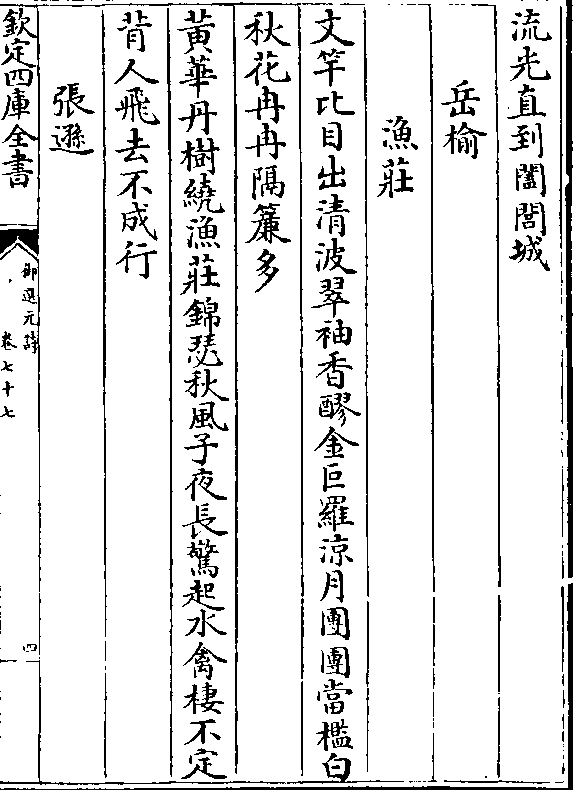 流光直到闔閭城
岳榆
漁莊
文竿比目出清波翠袖香醪金叵羅涼月團團當檻白
秋花冉冉隔簾多
黃華丹樹繞漁莊錦瑟秋風子夜長驚起水禽棲不定
背人飛去不成行
張遜
欽定四庫全書
御選元詩
卷七十七
四